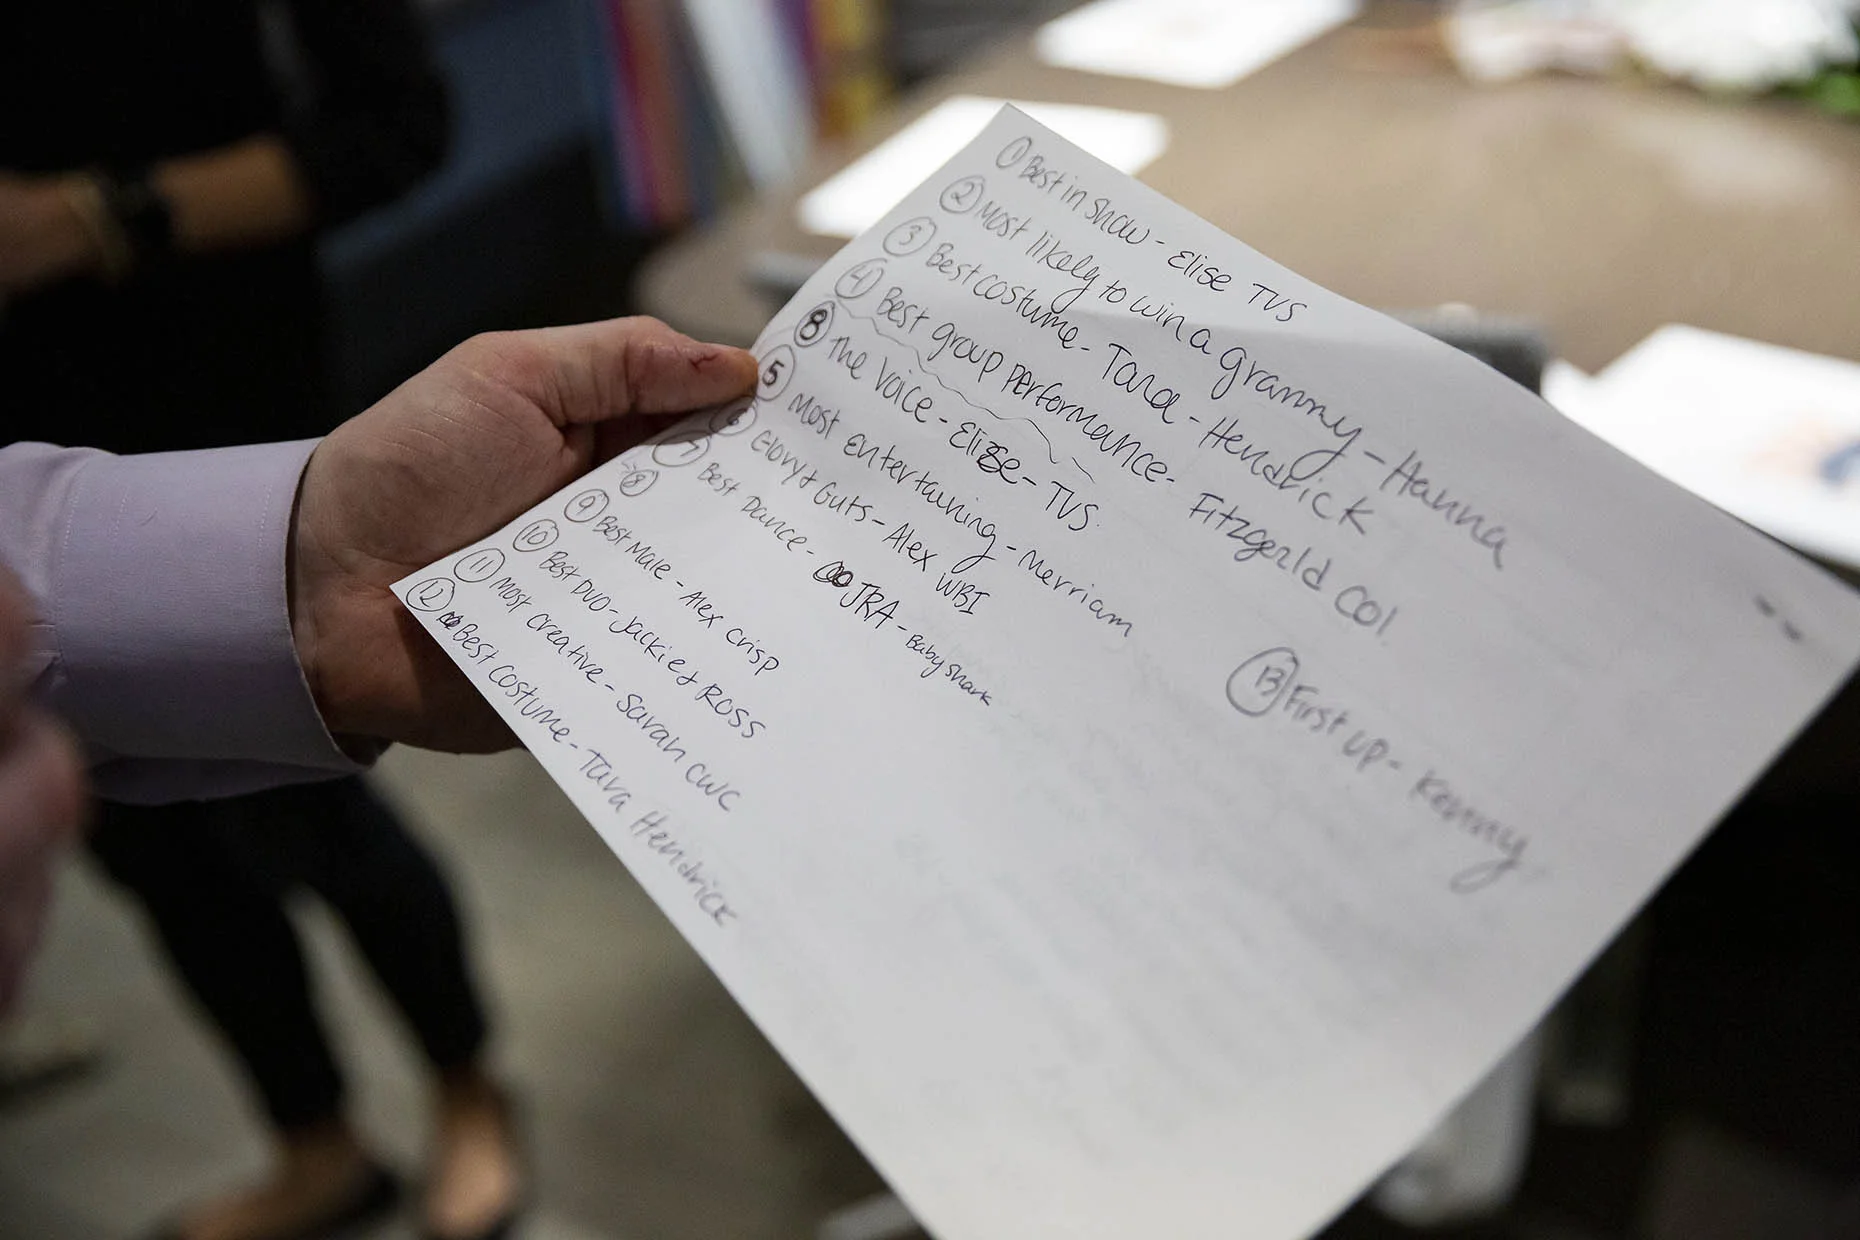 ① Best in Show - Elise TVS
② Most likely to win a grammy - Hanna
③ Best costume - Tara - Hendrick
④ Best group performance - Fitzgerld Col.
⑧ The Voice - Elise - TVS
⑤ Most Entertaining - Merriam
⑥ Glory & Guts - Alex WBI
⑦ Best Dance - JRA - Baby Shark
⑧
⑨ Best Male - Alex Crisp
⑩ Best DUO - Jackie & ROSS
⑪ Most Creative - Sarah CWC
⑫ Best Costume - Tara Hendrick
⑬ First up - Kenny